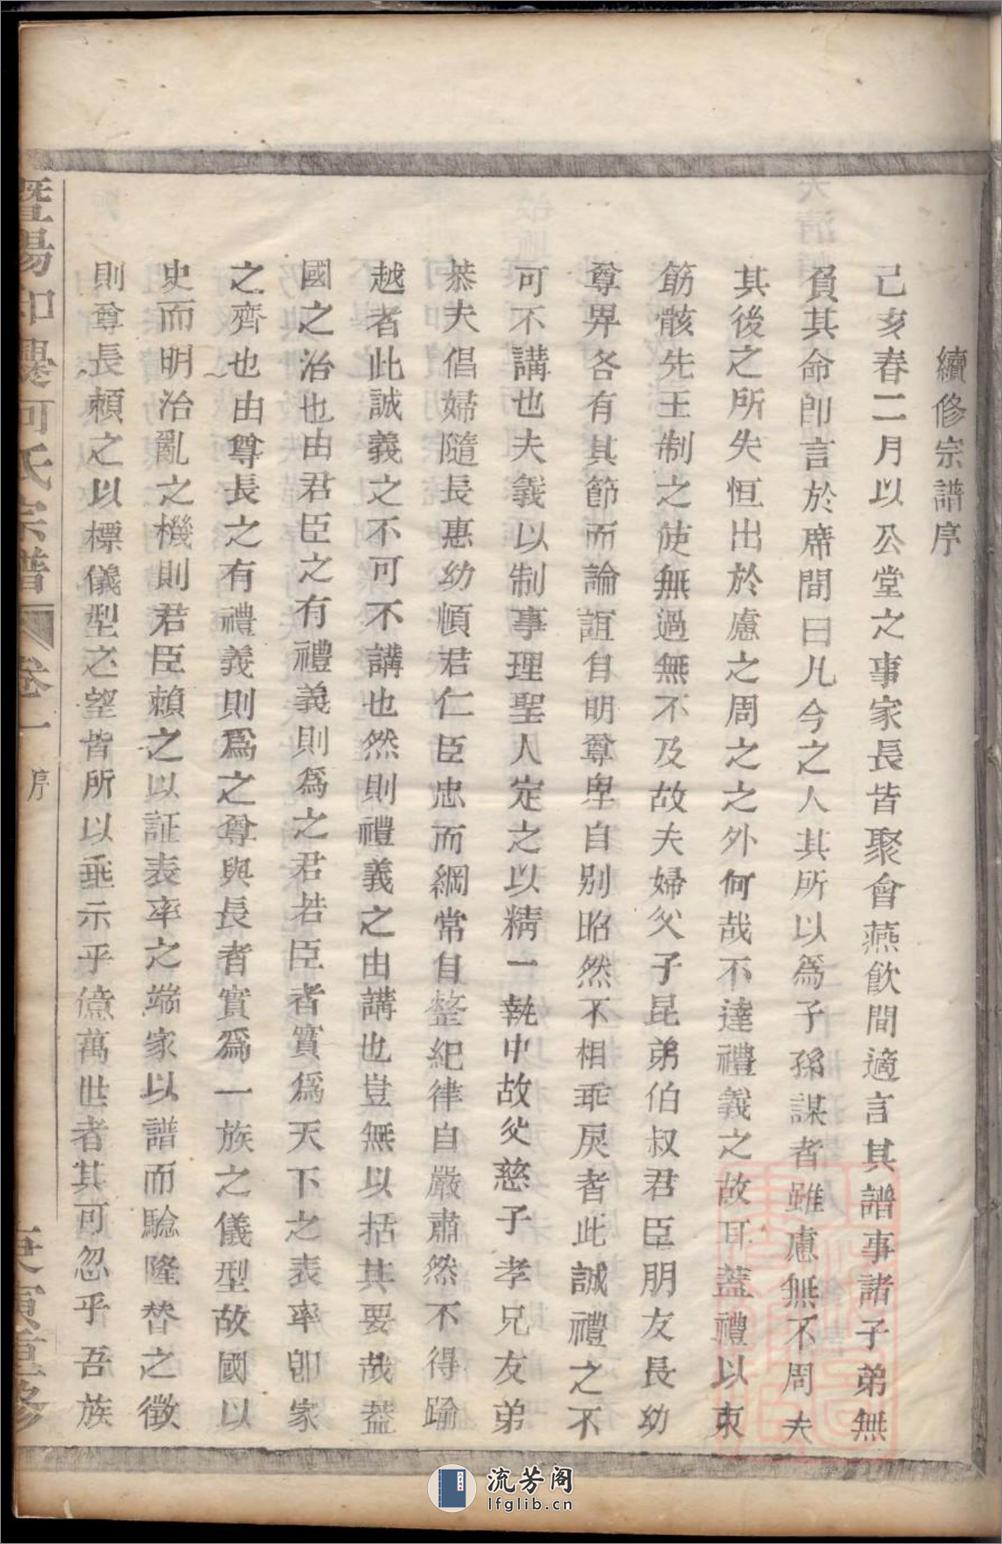 續修宗譜序
己亥春二月以公堂之事家長皆聚會燕飲間適言其譜事諸子弟無
負其命卽言於席間曰凡今之人其所以爲子孫謀者雖慮無不周夫
其後之所失恒出於慮之周之之外何哉不達禮義之故耳蓋禮以束
筋骸先王制之使無過無不及故夫婦父子昆弟伯叔君臣朋友長幼
尊畀各有其節而論誼自明尊卑自别昭然不相乖戾者此誠禮之不
可不講也夫義以制事理聖人定之以精一執中故父慈子孝兄友弟
恭夫倡婦隨長惠幼順君仁臣忠而綱常自整紀律自嚴肅然不得踰
越者此誠義之不可不講也然則禮義之由講也豈無以括其要哉蓋
國之治也由君臣之有禮義則爲之君若臣者實爲天下之表率卽家
之齊也由尊長之有禮義則爲之尊與長者實爲一族之儀型故國以
史而明治亂之機則君臣賴之以証表率之端家以譜而驗隆替之徵
則尊長賴之以標儀型之望皆所以垂示乎億萬世者其可忽乎吾族
暨陽 河氏宗譜 卷一 序 重修
流芳阁
lfglib.cn